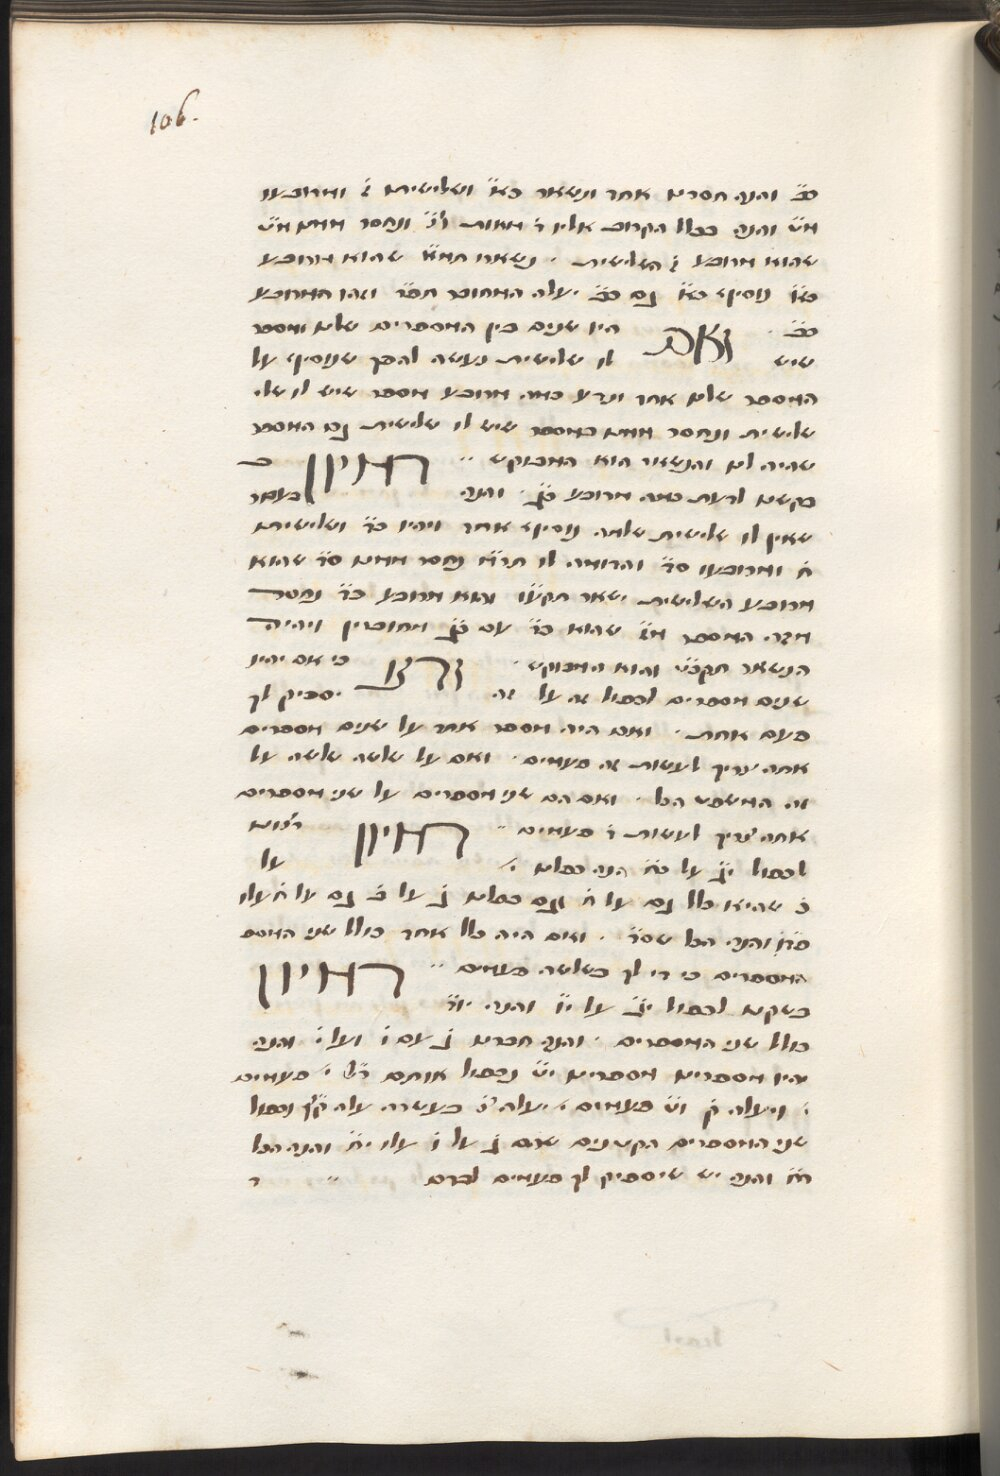 106.
כ״ב והנה חסרים אחד ונשאר כ״א ושלישית ז̇ ומרובעו
מ״ט והנה בכלל הקרוב אליו ד̇ מאות ונחסר ממם מ״ט
שהוא מרובע ז̇ השלישית . נשארו תמ״א שהוא מרובע
כ״א נוסיף כ״א גם כ״ב יעלה המחובר תפ״ד וזהו המרובע
כ״ב .
ואם היו שנים בין המספרים שלם ומספר
שיש לו שלישית נעשה להפך שנוסיף על
המספר שלם אחד ונדע כמה מרובע מספר שיש לו שלי
שלישית ונחסר ממם כמספר שיש לו שלישית גם המספר
שהיה לם והנשאר הוא המבוקש
דמיון
בקשם לדעת כמה מרובע כ״ג . והנה בעבור
שאין לו שלישית שלמה נוסיף אחד ויהיו כ״ד ושלישית
ח̇ ומרובעו ס״ד והדומה לו תר״מ נחסר ממם ס״ד שהוא
מרובע השלישית ישאר תקע״ו והוא מרובע כ״ד נחסר
מזה המספר מ״ז שהוא כ״ד עם כ״ג מחוברין ויהיה
הנשאר תקכ״ט והוא המבוקש . ודע כי אם יהיו
שנים מספרים לכפול זה על זה יספיק לך
פעם אחת . ואם היה מספר אחד על שנים מספרים
אתה צריך לעשות זה פעמים . ואם על שלשה שלשה על
זה המשפט הכל . ואם הם שני מספרים על שני מספרים
אתה צריך לעשות ד̇ פעמים
דמיון
רצונם
לכפול י״ג על כ״ח הנה כפלם י̇ על
כ̇ שהיא כלל גם על ח̇ וגם כפלם ג̇ על כ̇ גם על ח̇ עלו
והנה הכל שס״ד . ואם היה כל אחד כולל שני המספ
המספרים כי די לך בשלשה פעמים
דמיון
בקשם לכפול י״ג על י״ו והנה
כולל שני המספרים . והנה חברם ג̇ עם ו̇ ועל י̇ והנה
יהיו מספרים מספרים י״ט נכפול אותם י̇ פעמים
ויעלה ק̇ וט̇ פעמים י̇ יעלה צ̇ בעשרה עלה ק״צ ונכפול
שני המספרים הקטנים שהם ג̇ על ו̇ עלו י״ח והנה הכל
ר״ח והנה יש שיספיק לך פעמים לבדם